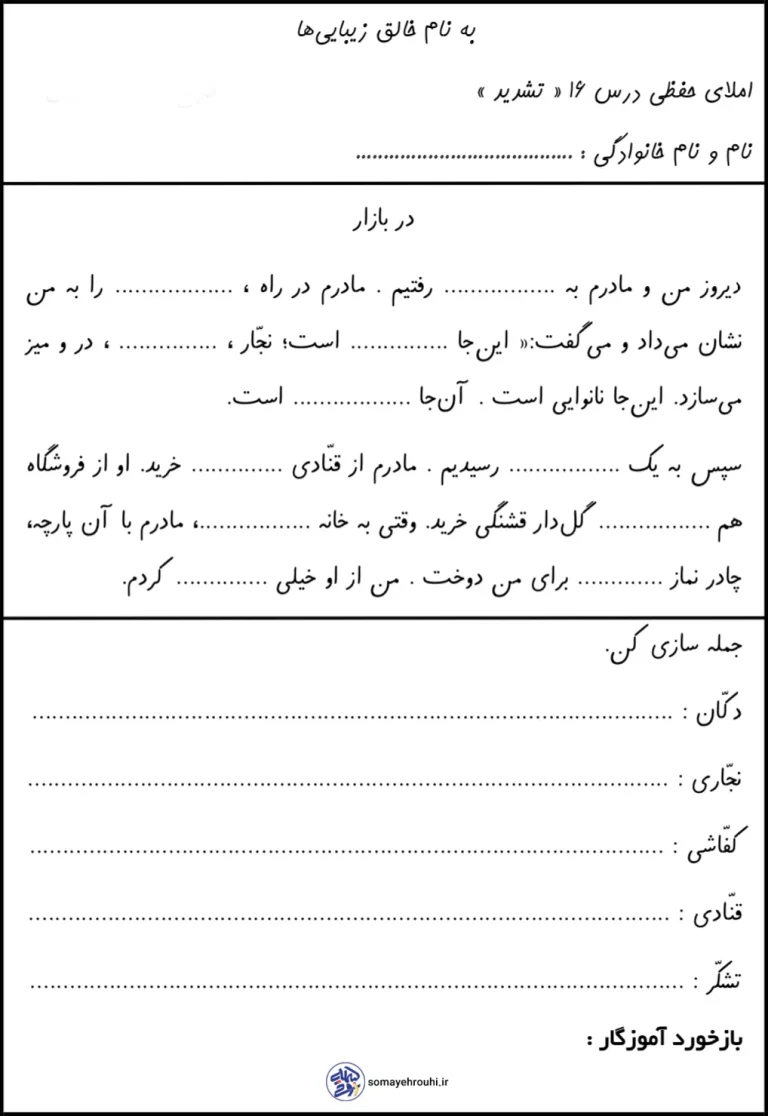 به نام خالق زیبایی‌ها
املای حفظی درس ۱۶ « تشدید »
نام و نام خانوادگی : .......................................
در بازار
دیروز من و مادرم به ................. رفتیم . مادرم در راه ، .................. را به من
نشان می‌داد و می‌گفت:« این‌جا ............... است؛ نجّار ، ............... ، در و میز
می‌سازد. این‌جا نانوایی است . آن‌جا .................. است.
سپس به یک ................. رسیدیم . مادرم از قنّادی .............. خرید. او از فروشگاه
هم ................. گل‌دار قشنگی خرید. وقتی به خانه .................، مادرم با آن پارچه،
چادر نماز ............. برای من دوخت . من از او خیلی .............. کردم.
جمله سازی کن.
دکّان : ................................................................................................
نجّاری : ................................................................................................
کفّاشی : ................................................................................................
قنّادی : ................................................................................................
تشکّر : ................................................................................................
بازخورد آموزگار :
somayehrouhi.ir